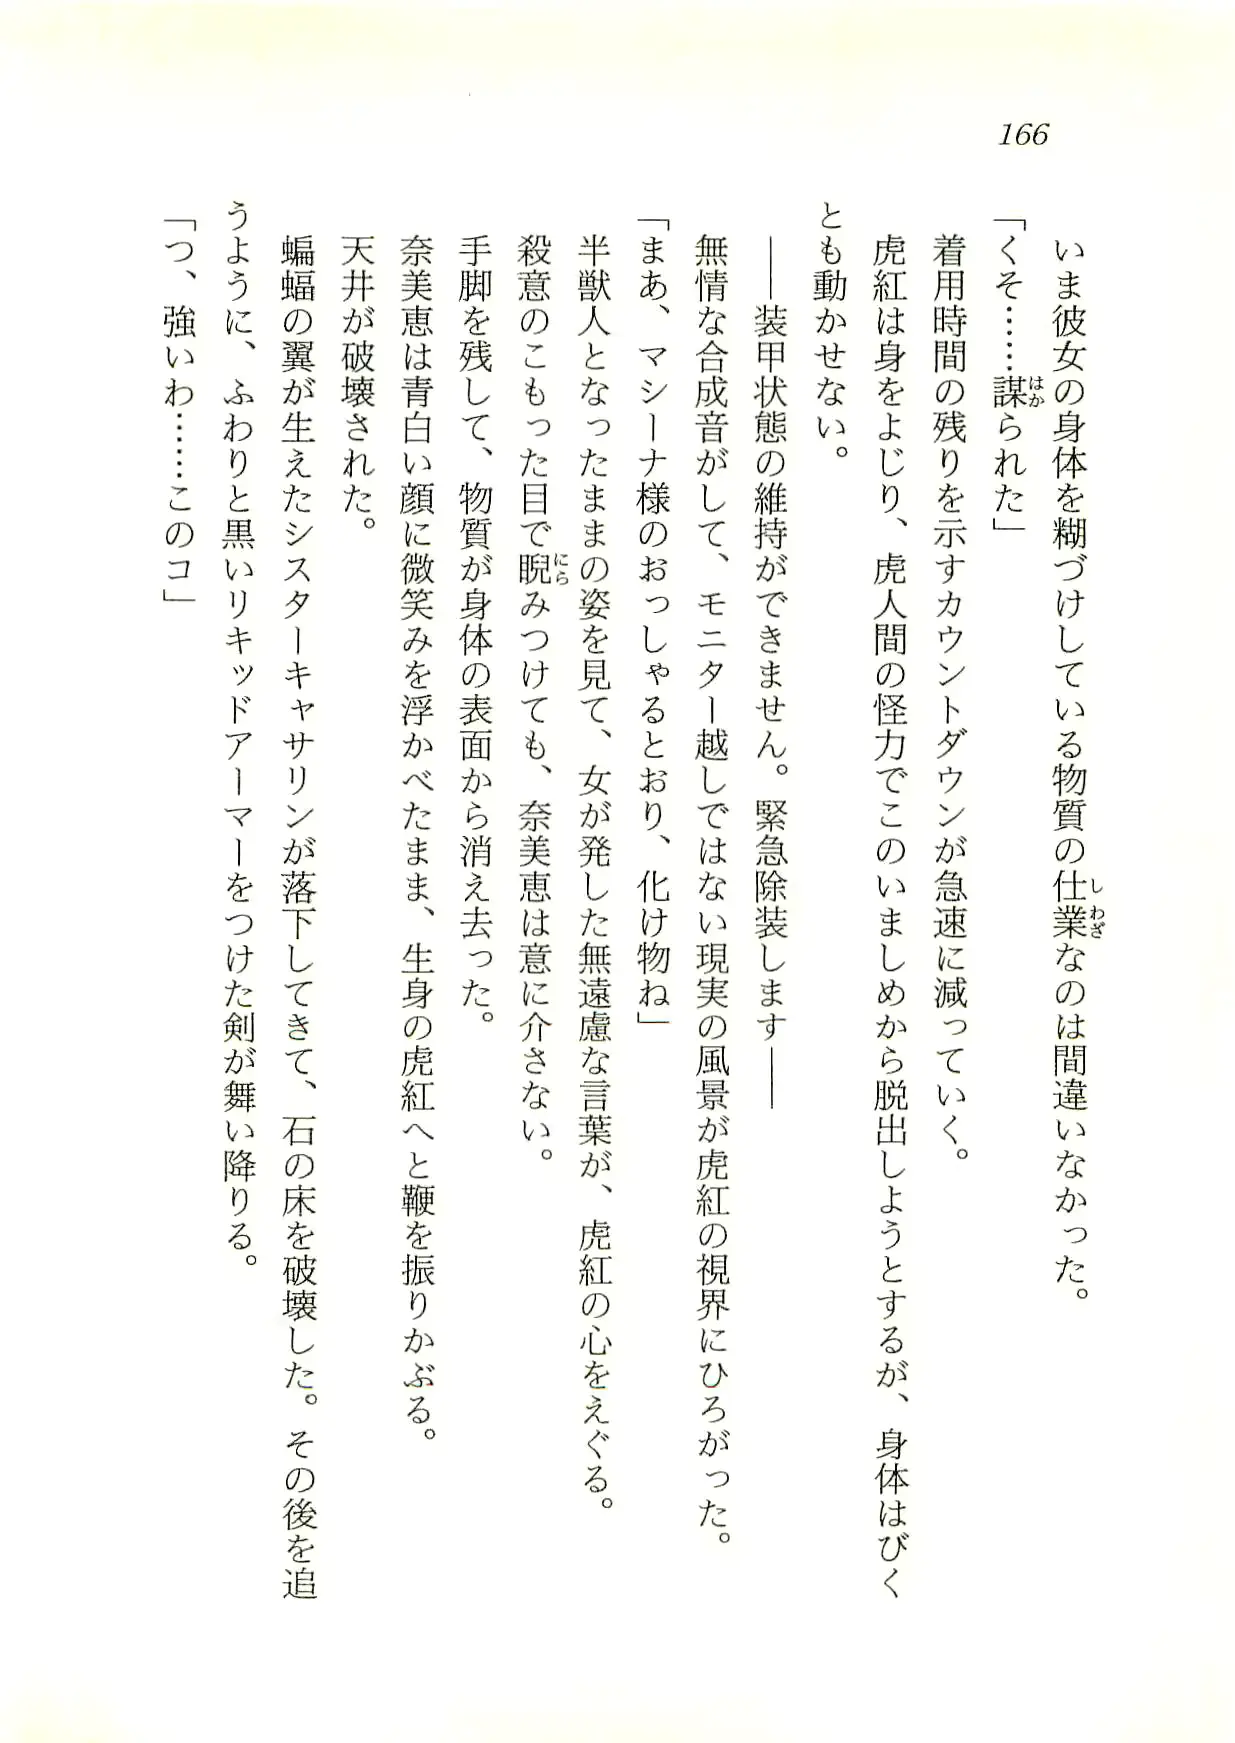 166
いま彼女の身体を糊づけしている物質の仕業なのは間違いなかった。
「くそ……謀られた」
着用時間の残りを示すカウントダウンが急速に減っていく。
虎紅は身をよじり、虎人間の怪力でこのいましめから脱出しようとするが、身体はびく
とも動かせない。
――装甲状態の維持ができません。緊急除装します――
無情な合成音がして、モニター越しではない現実の風景が虎紅の視界にひろがった。
「まあ、マシーナ様のおっしゃるとおり、化け物ね」
半獣人となったままの姿を見て、女が発した無遠慮な言葉が、虎紅の心をえぐる。
殺意のこもった目で睨みつけても、奈美恵は意に介さない。
手脚を残して、物質が身体の表面から消え去った。
奈美恵は青白い顔に微笑みを浮かべたまま、生身の虎紅へと鞭を振りかぶる。
天井が破壊された。
蝙蝠の翼が生えたシスターキャサリンが落下してきて、石の床を破壊した。その後を追
うように、ふわりと黒いリキッドアーマーをつけた剣が舞い降りる。
「つ、強いわ……このコ」